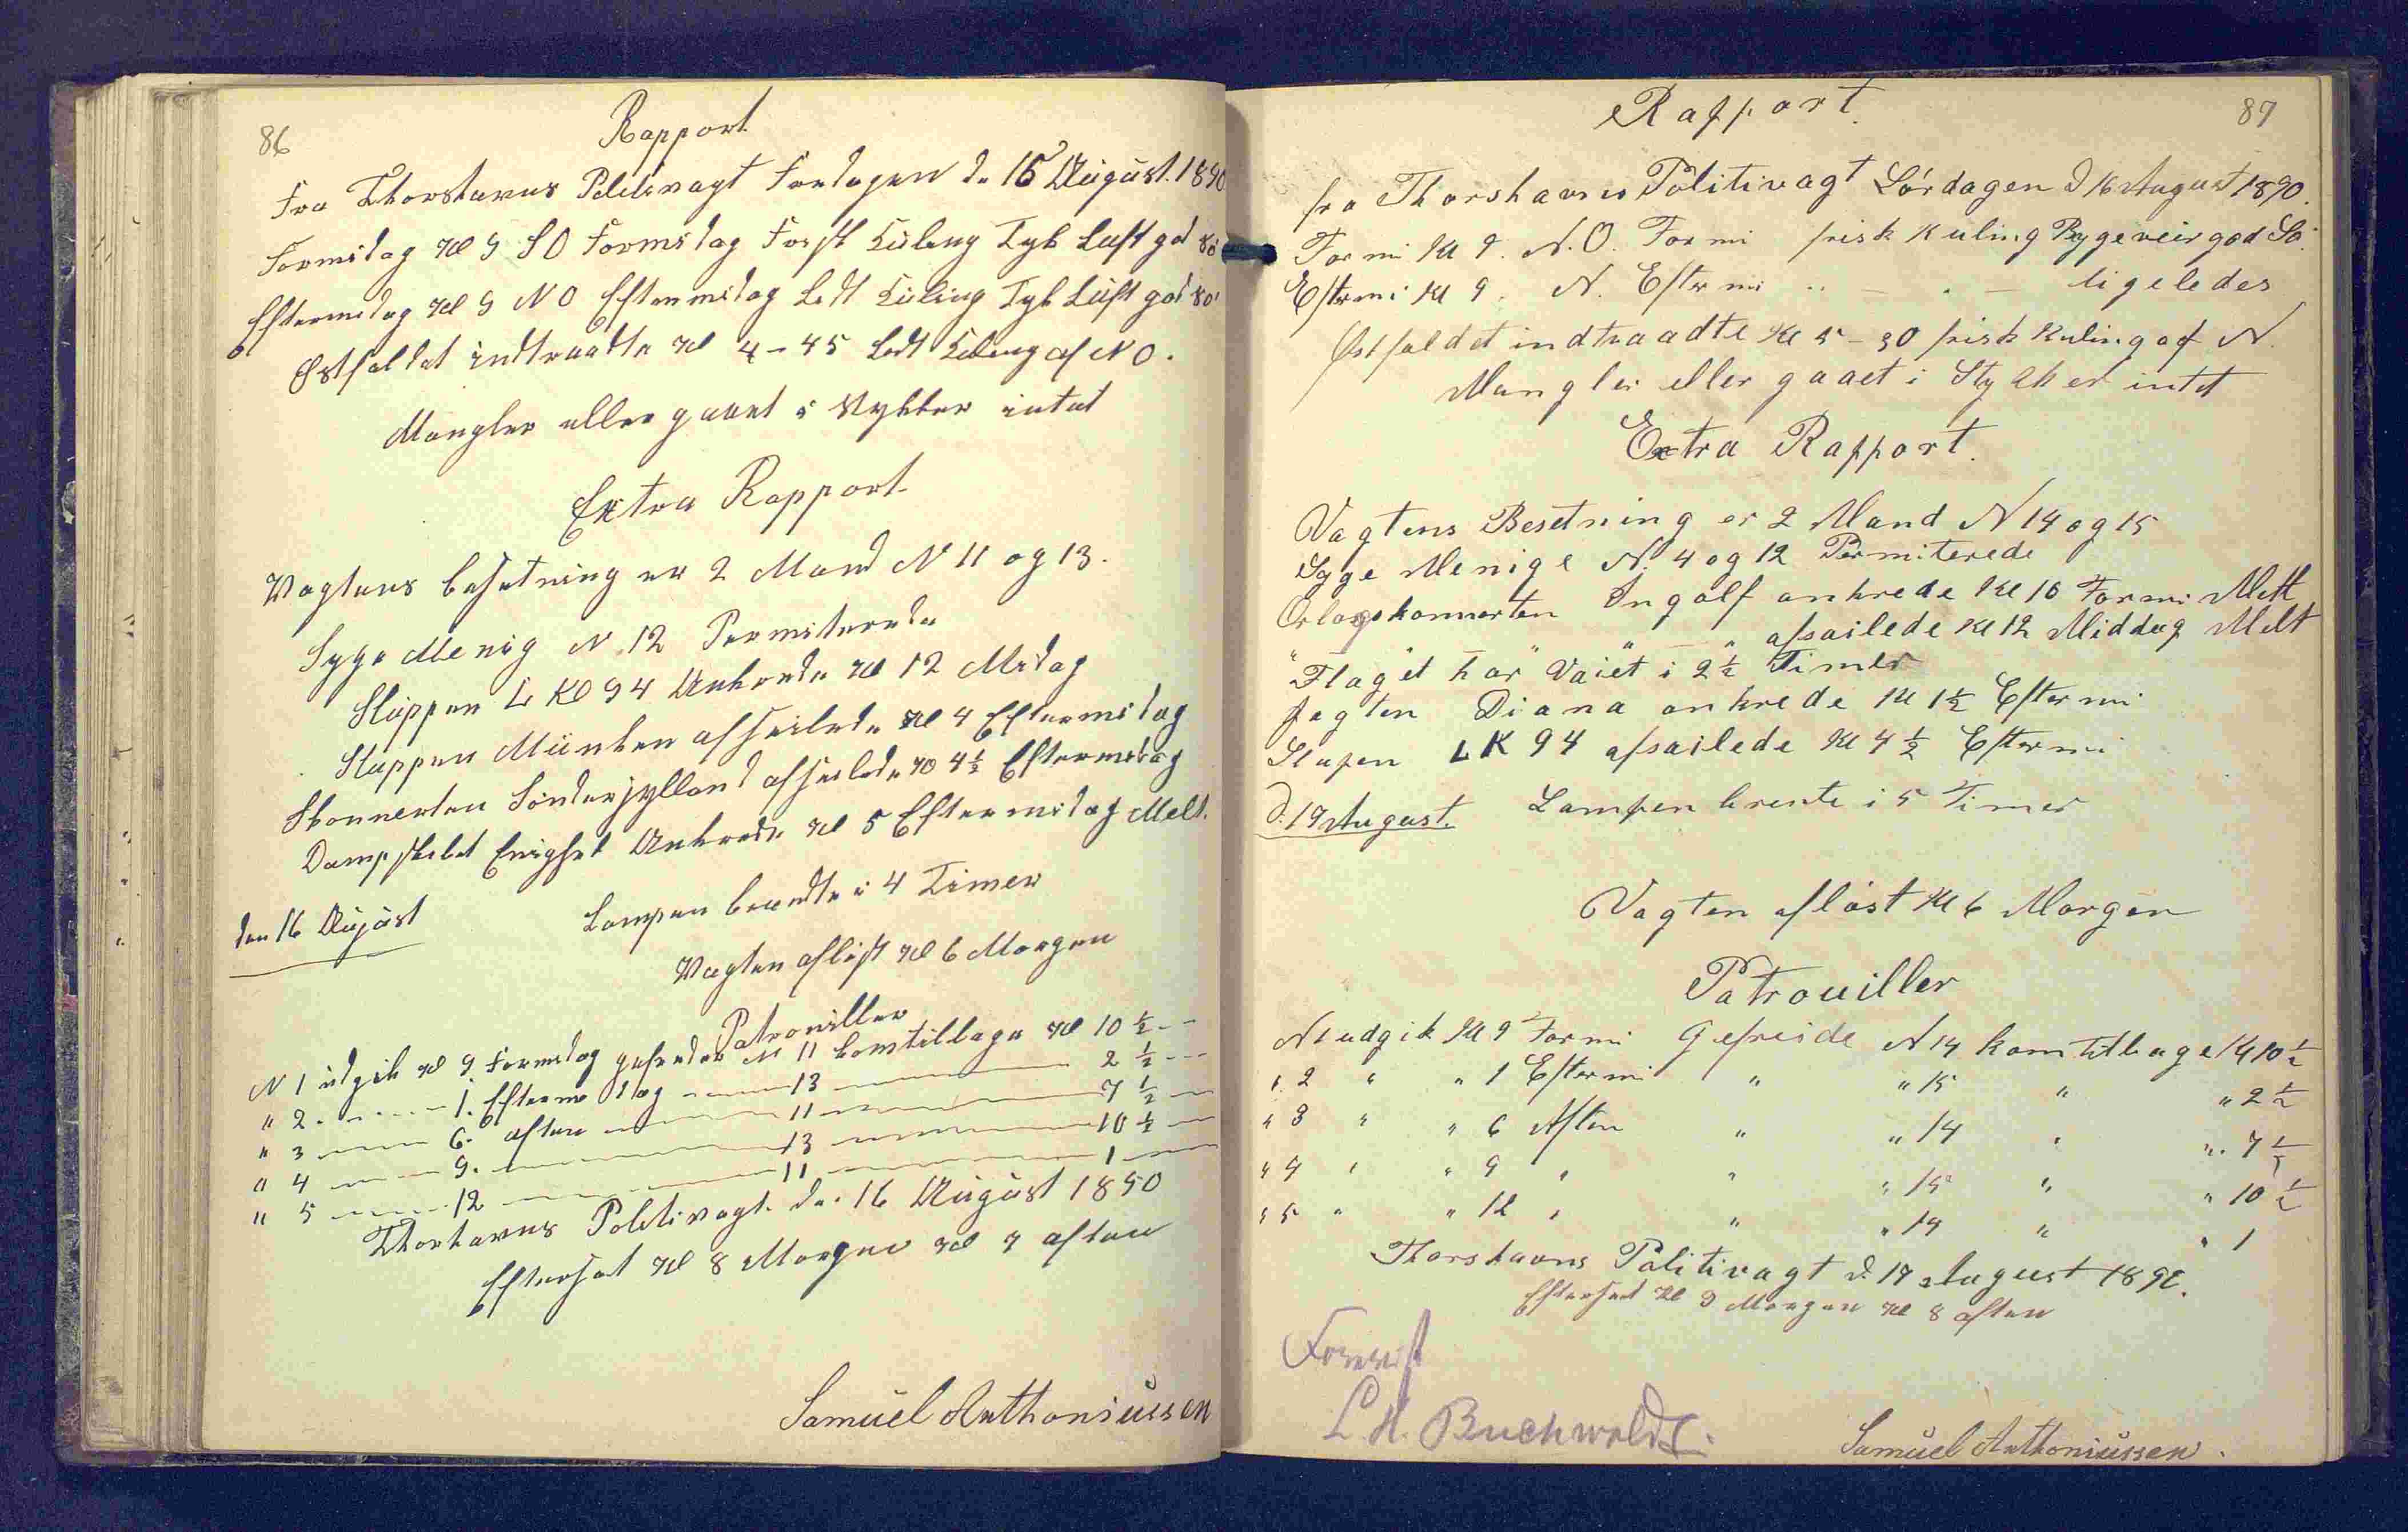 86
Rapport
Fra Thorshavns Politivagt Fredagen d. 15 August. 1890
Formidag Kl 9 SO Formidag Frisk Kuling Tyk Luft god Sö
Eftermidag Kl 9 NO Eftermidag Ledt Kuling Tyk Luft god Sö
Østfaldet indtraadte Kl 4-45 Ledt Kuling af NO.
Mangler eller gaaet i Stykker intet
Extra Rapport
Vagtens besetning er 2 Mand N 11 og 13.
Syge Menig N 12 Permiterede
Sluppen L K 94 Ankrede Kl 12 Midag
Sluppen Münken afseilede Kl 4 Eftermidag
Skonnerten Sönderjylland afseilede Kl 4½ Eftermidag
Dampskibet Enighet Ankrede Kl 5 Eftermidag Melt.
den 16 August
Lampen brendte i 4 Timer
Vagten aflöst Kl 6 Morgen
Patrouiller
N 1 udgik Kl 9 Formidag gefreder N 11 komtilbage Kl 10½ --
" 2 - - - - 1. Eftermidag - - 13 - - 2½ --
" 3 - - 6. aften - - 11 - - 7½ -
" 4 - - 9. - - 13 - - 10½ -
" 5 - - 12 - - 11 - - 1 -
Thorhavns Politivagt d. 16 August 1890
Efterset Kl 8 Morgen Kl 7 aften
Samuel Anthoniussen
87
Rapport.
fra Thorshavns Politivagt Lördagen d 16 August 1890.
Formi Kl 9. N.O. Formi frisk Kuling Bygeveir god Sö.
Eftermi Kl 9. N. Eftermi " — " — ligeledes
Østfaldet indtraadte Kl 5-30 frisk Kuling af N.
Mangler eller gaaet i Stykker intet
Extra Rapport.
Vagtens Besetning er 2 Mand N 14 og 15
Syge Menige N. 4 og 12 Permiterede
Orlogskonnerten Ingolf ankrede Kl 10 Formi Melt
" — " " — " afsailede Kl 12 Middag Melt
Flaget har Vaiet i 2½ Timer
Jagten Diana ankrede Kl 1½ Eftermi
Slupen LK 94 afsailede Kl 4½ Eftermi
d. 17 August. Lampen brente i 5 Timer
Vagten aflöst Kl 6 Morgen
Patrouiller
N1 udgik Kl 9 Formi Gefreide N 14 kom tilbage Kl 10½
" 2 " " 1 Eftermi " " 15 " " 2½
" 3 " " 6 Aften " " 14 " " 7½
" 4 " " 9 " " " 15 " " 10½
" 5 " " 12 " " " 14 " " 1
Thorshavns Politivagt d. 17 August 1890.
Efterset Kl 9 Morgen Kl 8 aften
Forevist
L H. Buchwaldt.
Samuel Anthoniussen.